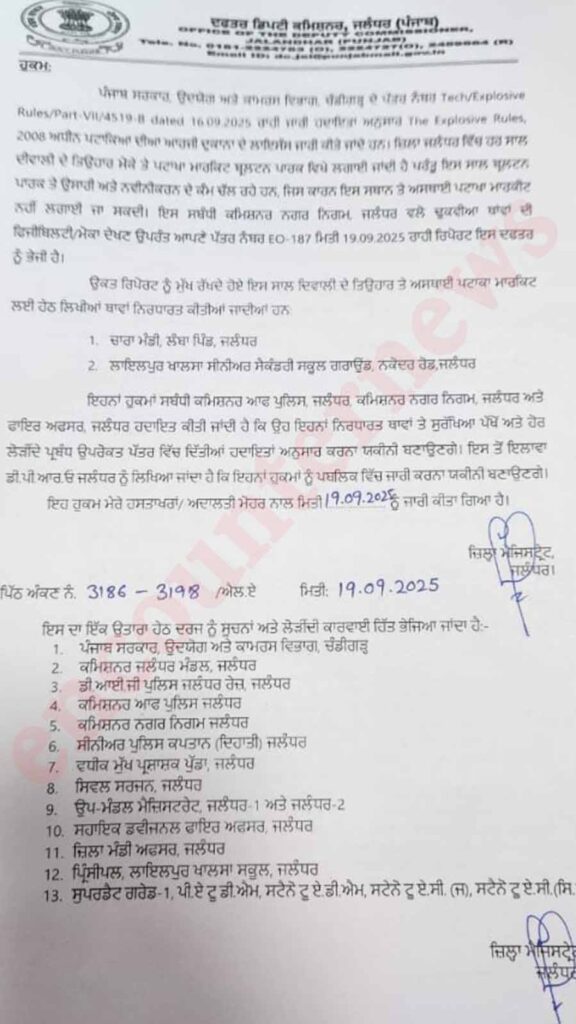 ਦਫਤਰ ਡਿਪਟੀ ਕਮਿਸ਼ਨਰ, ਜਲੰਧਰ (ਪੰਜਾਬ)
OFFICE OF THE DEPUTY COMMISSIONER,
JALANDHAR (PUNJAB)
Tele. No. 0181-2224783 (O),
Email ID:
ਹੁਕਮ:
ਪੰਜਾਬ ਸਰਕਾਰ, ਉਦਯੋਗ ਅਤੇ ਕਾਮਰਸ ਵਿਭਾਗ, ਚੰਡੀਗੜ੍ਹ ਦੇ ਪੱਤਰ ਨੰਬਰ Tech/Explosive
Rules/Part-VII/4519-B dated 16.09.2025 ਰਾਹੀ ਜਾਰੀ ਹਦਾਇਤਾਂ ਅਨੁਸਾਰ The Explosive Rules,
2008 ਅਧੀਨ ਪਟਾਕਿਆ ਦੀਆ ਆਰਜੀ ਦੁਕਾਨਾ ਦੇ ਲਾਇਸੰਸ ਜਾਰੀ ਕੀਤੇ ਜਾਂਦੇ ਹਨ। ਜ਼ਿਲਾ ਜਲੰਧਰ ਵਿੱਚ ਹਰ ਸਾਲ
ਦੀਵਾਲੀ ਦੇ ਤਿਉਹਾਰ ਮੌਕੇ ਤੇ ਪਟਾਖਾ ਮਾਰਕਿਟ ਬੂਲਟਨ ਪਾਰਕ ਵਿਖੇ ਲਗਾਈ ਜਾਂਦੀ ਹੈ ਪਰੰਤੂ ਇਸ ਸਾਲ ਬੂਲਟਨ
ਪਾਰਕ ਤੇ ਉਸਾਰੀ ਅਤੇ ਨਵੀਨੀਕਰਨ ਦੇ ਕੰਮ ਚੱਲ ਰਹੇ ਹਨ, ਜਿਸ ਕਾਰਨ ਇਸ ਸਥਾਨ ਤੇ ਅਸਥਾਈ ਪਟਾਖਾ ਮਾਰਕੀਟ
ਨਹੀਂ ਲਗਾਈ ਜਾ ਸਕਦੀ। ਇਸ ਸਬੰਧੀ ਕਮਿਸ਼ਨਰ ਨਗਰ ਨਿਗਮ, ਜਲੰਧਰ ਵਲੋ ਢੁਕਵੀਆ ਥਾਂਵਾਂ ਦੀ
ਫਿਜੀਬਿਲਟੀ/ਮੌਕਾ ਦੇਖਣ ਉਪਰੰਤ ਆਪਣੇ ਪੱਤਰ ਨੰਬਰ EO-187 ਮਿਤੀ 19.09.2025 ਰਾਹੀ ਰਿਪੋਰਟ ਇਸ ਦਫਤਰ
ਨੂੰ ਭੇਜੀ ਹੈ।
ਉਕਤ ਰਿਪੋਰਟ ਨੂੰ ਮੁੱਖ ਰੱਖਦੇ ਹੋਏ ਇਸ ਸਾਲ ਦਿਵਾਲੀ ਦੇ ਤਿਉਹਾਰ ਤੇ ਅਸਥਾਈ ਪਟਾਕਾ ਮਾਰਕਿਟ
ਲਈ ਹੇਠ ਲਿਖੀਆਂ ਥਾਵਾਂ ਨਿਰਧਾਰਤ ਕੀਤੀਆਂ ਜਾਂਦੀਆਂ ਹਨ:
1. ਚਾਰਾ ਮੰਡੀ, ਲੰਬਾ ਪਿੰਡ, ਜਲੰਧਰ
2. ਲਾਇਲਪੁਰ ਖਾਲਸਾ ਸੀਨੀਅਰ ਸੈਕੰਡਰੀ ਸਕੂਲ ਗਰਾਊਂਡ, ਨਕੋਦਰ ਰੋਡ,ਜਲੰਧਰ
ਇਹਨਾਂ ਹੁਕਮਾਂ ਸਬੰਧੀ ਕਮਿਸ਼ਨਰ ਆਫ ਪੁਲਿਸ, ਜਲੰਧਰ, ਕਮਿਸ਼ਨਰ ਨਗਰ ਨਿਗਮ, ਜਲੰਧਰ ਅਤੇ
ਫਾਇਰ ਅਫਸਰ, ਜਲੰਧਰ ਹਦਾਇਤ ਕੀਤੀ ਜਾਂਦੀ ਹੈ ਕਿ ਉਹ ਇਹਨਾਂ ਨਿਰਧਾਰਤ ਥਾਵਾਂ ਤੇ ਸੁਰੱਖਿਆ ਪੱਖੋਂ ਅਤੇ ਹੋਰ
ਲੋੜੀਂਦੇ ਪ੍ਰਬੰਧ ਉਪਰੋਕਤ ਪੱਤਰ ਵਿੱਚ ਦਿੱਤੀਆਂ ਹਦਾਇਤਾਂ ਅਨੁਸਾਰ ਕਰਨਾ ਯਕੀਨੀ ਬਣਾਉਣਗੇ। ਇਸ ਤੋਂ ਇਲਾਵਾ
ਡੀ.ਪੀ.ਆਰ.ਓ ਜਲੰਧਰ ਨੂੰ ਲਿਖਿਆ ਜਾਂਦਾ ਹੈ ਕਿ ਇਹਨਾਂ ਹੁਕਮਾਂ ਨੂੰ ਪਬਲਿਕ ਵਿੱਚ ਜਾਰੀ ਕਰਨਾ ਯਕੀਨੀ ਬਣਾਉਣਗੇ।
ਇਹ ਹੁਕਮ ਮੇਰੇ ਹਸਤਾਖਰਾਂ/ ਅਦਾਲਤੀ ਮੋਹਰ ਨਾਲ ਮਿਤੀ 19.09.2025 ਨੂੰ ਜਾਰੀ ਕੀਤਾ ਗਿਆ ਹੈ।
ਜ਼ਿਲ੍ਹਾ ਮੈਜਿਸਟ੍ਰੇਟ,
ਜਲੰਧਰ।
ਪਿੱਠ ਅੰਕਣ ਨੰ. 3186 – 3198 /ਐਲ.ਏ ਮਿਤੀ: 19.09.2025
ਇਸ ਦਾ ਇੱਕ ਉਤਾਰਾ ਹੇਠ ਦਰਜ ਨੂੰ ਸੂਚਨਾਂ ਅਤੇ ਲੋੜੀਂਦੀ ਕਾਰਵਾਈ ਹਿੱਤ ਭੇਜਿਆ ਜਾਂਦਾ ਹੈ:-
1. ਪੰਜਾਬ ਸਰਕਾਰ, ਉਦਯੋਗ ਅਤੇ ਕਾਮਰਸ ਵਿਭਾਗ, ਚੰਡੀਗੜ੍ਹ
2. ਕਮਿਸ਼ਨਰ ਜਲੰਧਰ ਮੰਡਲ, ਜਲੰਧਰ
3. ਡੀ.ਆਈ.ਜੀ ਪੁਲਿਸ ਜਲੰਧਰ ਰੇਂਜ, ਜਲੰਧਰ
4. ਕਮਿਸ਼ਨਰ ਆਫ ਪੁਲਿਸ ਜਲੰਧਰ
5. ਕਮਿਸ਼ਨਰ ਨਗਰ ਨਿਗਮ ਜਲੰਧਰ
6. ਸੀਨੀਅਰ ਪੁਲਿਸ ਕਪਤਾਨ (ਦਿਹਾਤੀ) ਜਲੰਧਰ
7. ਵਧੀਕ ਮੁੱਖ ਪ੍ਰਸ਼ਾਸ਼ਕ ਪੁੱਡਾ, ਜਲੰਧਰ
8. ਸਿਵਲ ਸਰਜਨ, ਜਲੰਧਰ
9. ਉਪ-ਮੰਡਲ ਮੈਜ਼ਿਸਟਰੇਟ, ਜਲੰਧਰ-1 ਅਤੇ ਜਲੰਧਰ-2
10. ਸਹਾਇਕ ਡਵੀਜਨਲ ਫਾਇਰ ਅਫਸਰ, ਜਲੰਧਰ
11. ਜ਼ਿਲਾ ਮੰਡੀ ਅਫਸਰ, ਜਲੰਧਰ
12. ਪ੍ਰਿੰਸੀਪਲ, ਲਾਇਲਪੁਰ ਖਾਲਸਾ ਸਕੂਲ, ਜਲੰਧਰ
13. ਸੁਪਰਡੈਟ ਗਰੇਡ-1, ਪੀ.ਏ ਟੂ ਡੀ.ਐਮ, ਸਟੈਨੋ ਟੂ ਏ.ਡੀ.ਐਮ, ਸਟੈਨੋ ਟੂ ਏ.ਸੀ. (ਜ), ਸਟੈਨੋ ਟੂ ਏ.ਸੀ.(ਸਿ.
ਜ਼ਿਲ੍ਹਾ ਮੈਜਿਸਟ੍ਰੇ
ਜਲੰਧਰ
encounternews